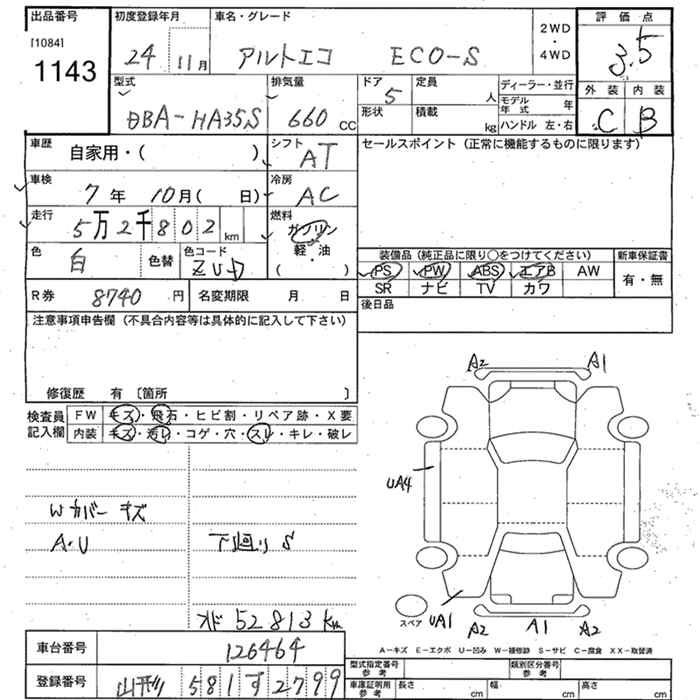 出品番号
[1084]
1143
初度登録年月
24 11月
車名・グレード
アルトエコ ECO-S
2WD
・
4WD
評価点
3.5
外装 内装
C B
型式
DBA-HA35S
排気量
660 CC
ドア
5
定員
人
形状
積載
kg
ディーラー・並行
モデル年式 年
ハンドル 左・右
車歴
自家用・( )
シフト
AT
車検
7年 10月( 日)
冷房
AC
走行
5万2千802 km
燃料
ガソリン
軽・油
( )
色
白
色替
色コード
ZUD
R券 8740 円
名変期限 月 日
セールスポイント (正常に機能するものに限ります)
装備品 (純正品に限り○をつけてください)
PS PW ABS エアB AW
SR ナビ TV カワ
新車保証書
有・無
後日品
注意事項申告欄 (不具合内容等は具体的に記入して下さい)
修復歴 有 〔箇所 〕
検査員記入欄
FW キズ・飛石・ヒビ割・リペア跡・X要
内装 キズ・汚レ・コゲ・穴・スレ・キレ・破レ
Wカバー キズ
A・U
下廻り S
オド 52813 km
A2 A1
UA4
UA1 A2 A1 A2
スペア
A-キズ E-エクボ U-凹み W-補修跡 S-サビ C-腐食 XX-取替済
車台番号
126464
登録番号
山形 581 す 2799
型式指定番号
参考
類別区分番号
参考
車庫証明用
参考
長さ cm
幅 cm
高さ cm